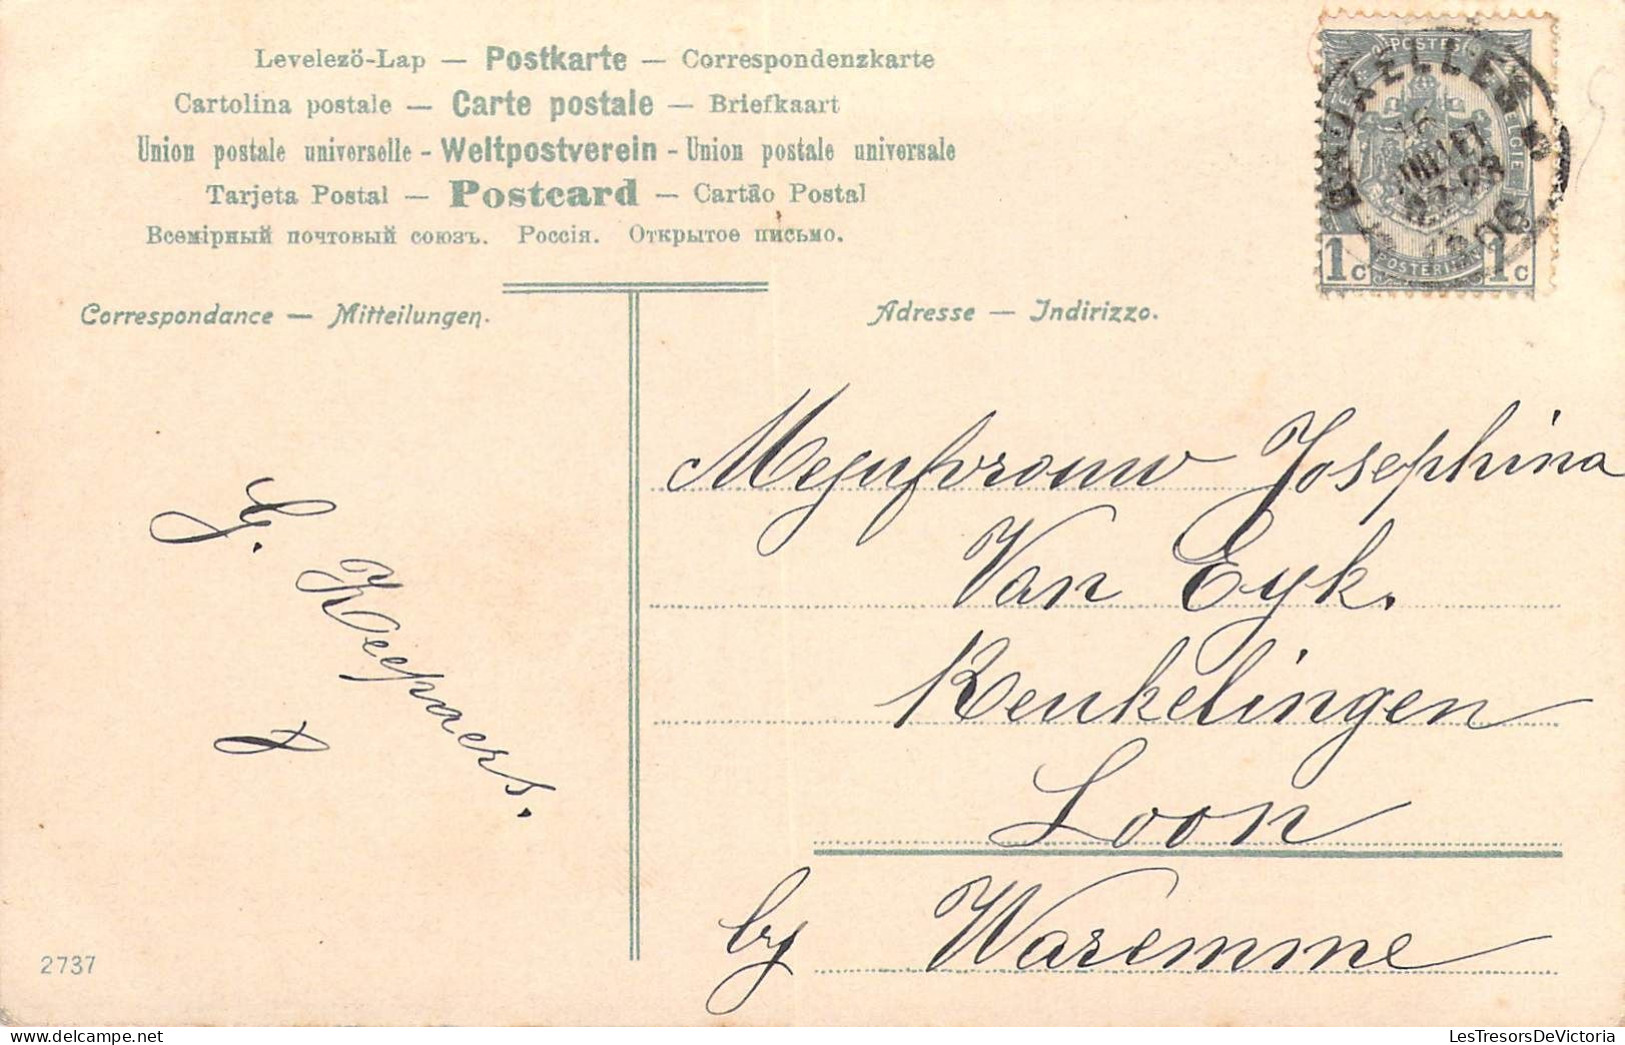 Levelező-Lap — Postkarte — Correspondenzkarte
Cartolina postale — Carte postale — Briefkaart
Union postale universelle - Weltpostverein - Union postale universale
Tarjeta Postal — Postcard — Cartão Postal
Всемірный почтовый союзъ. Россія. Открытое письмо.
Correspondance — Mitteilungen.
Adresse — Indirizzo.
POSTES
BRUXELLES 5
JUILLET
1906
1 C
1 C
Mejufvrouw Josephina
Van Eyk.
Keukelingen
Loon
by Waremme
G. Keepaers.
2737
LesTresorsDeVictoria